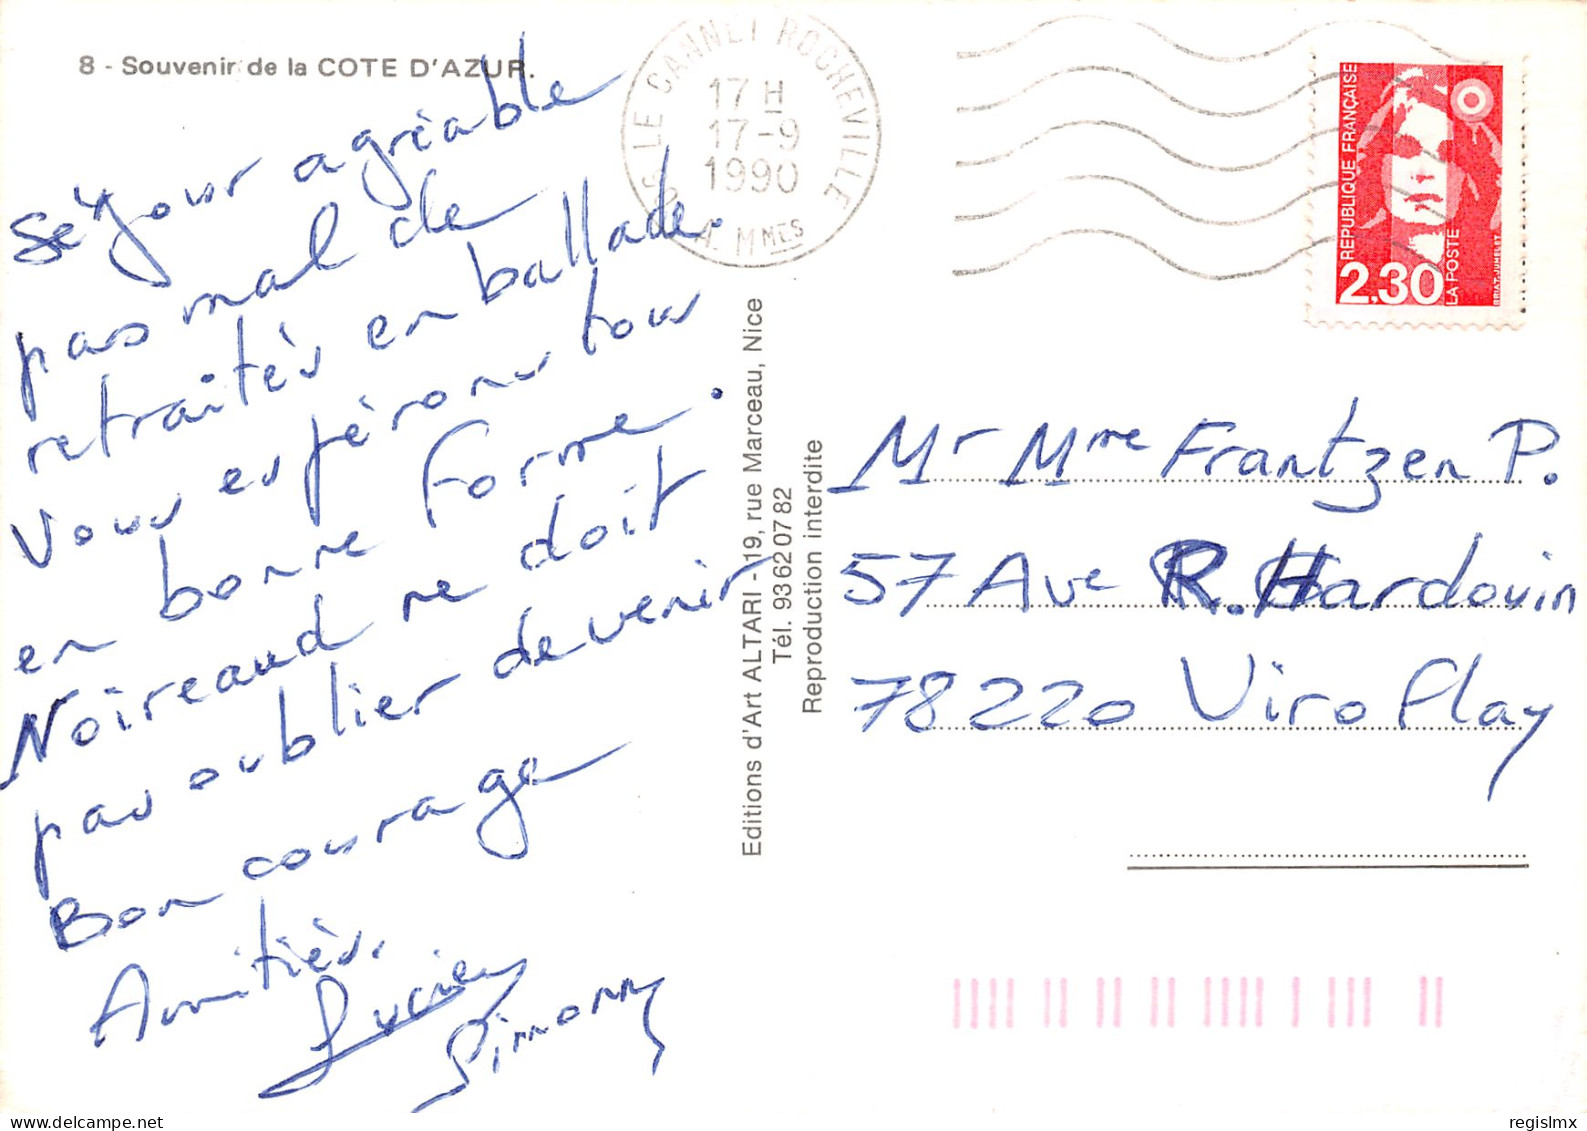 8 - Souvenir de la COTE D'AZUR.
séjour agréable
pas mal de
retraités en ballade.
Vous espérons tous
en bonne forme.
Noireaud ne doit
pas oublier de venir
Bon courage
Amitiés.
Lucien
Simonny
06 LE CANNET ROCHEVILLE
17 H
17-9
1990
A. MMES
REPUBLIQUE FRANÇAISE
2,30
LA POSTE
BRIAT-JUMELET
Editions d'Art ALTARI - 19, rue Marceau, Nice
Tél. 93 62 07 82
Reproduction interdite
Mr Mme Frantzen P.
57 Ave R. Hardouin
78220 Viroflay
regislmx